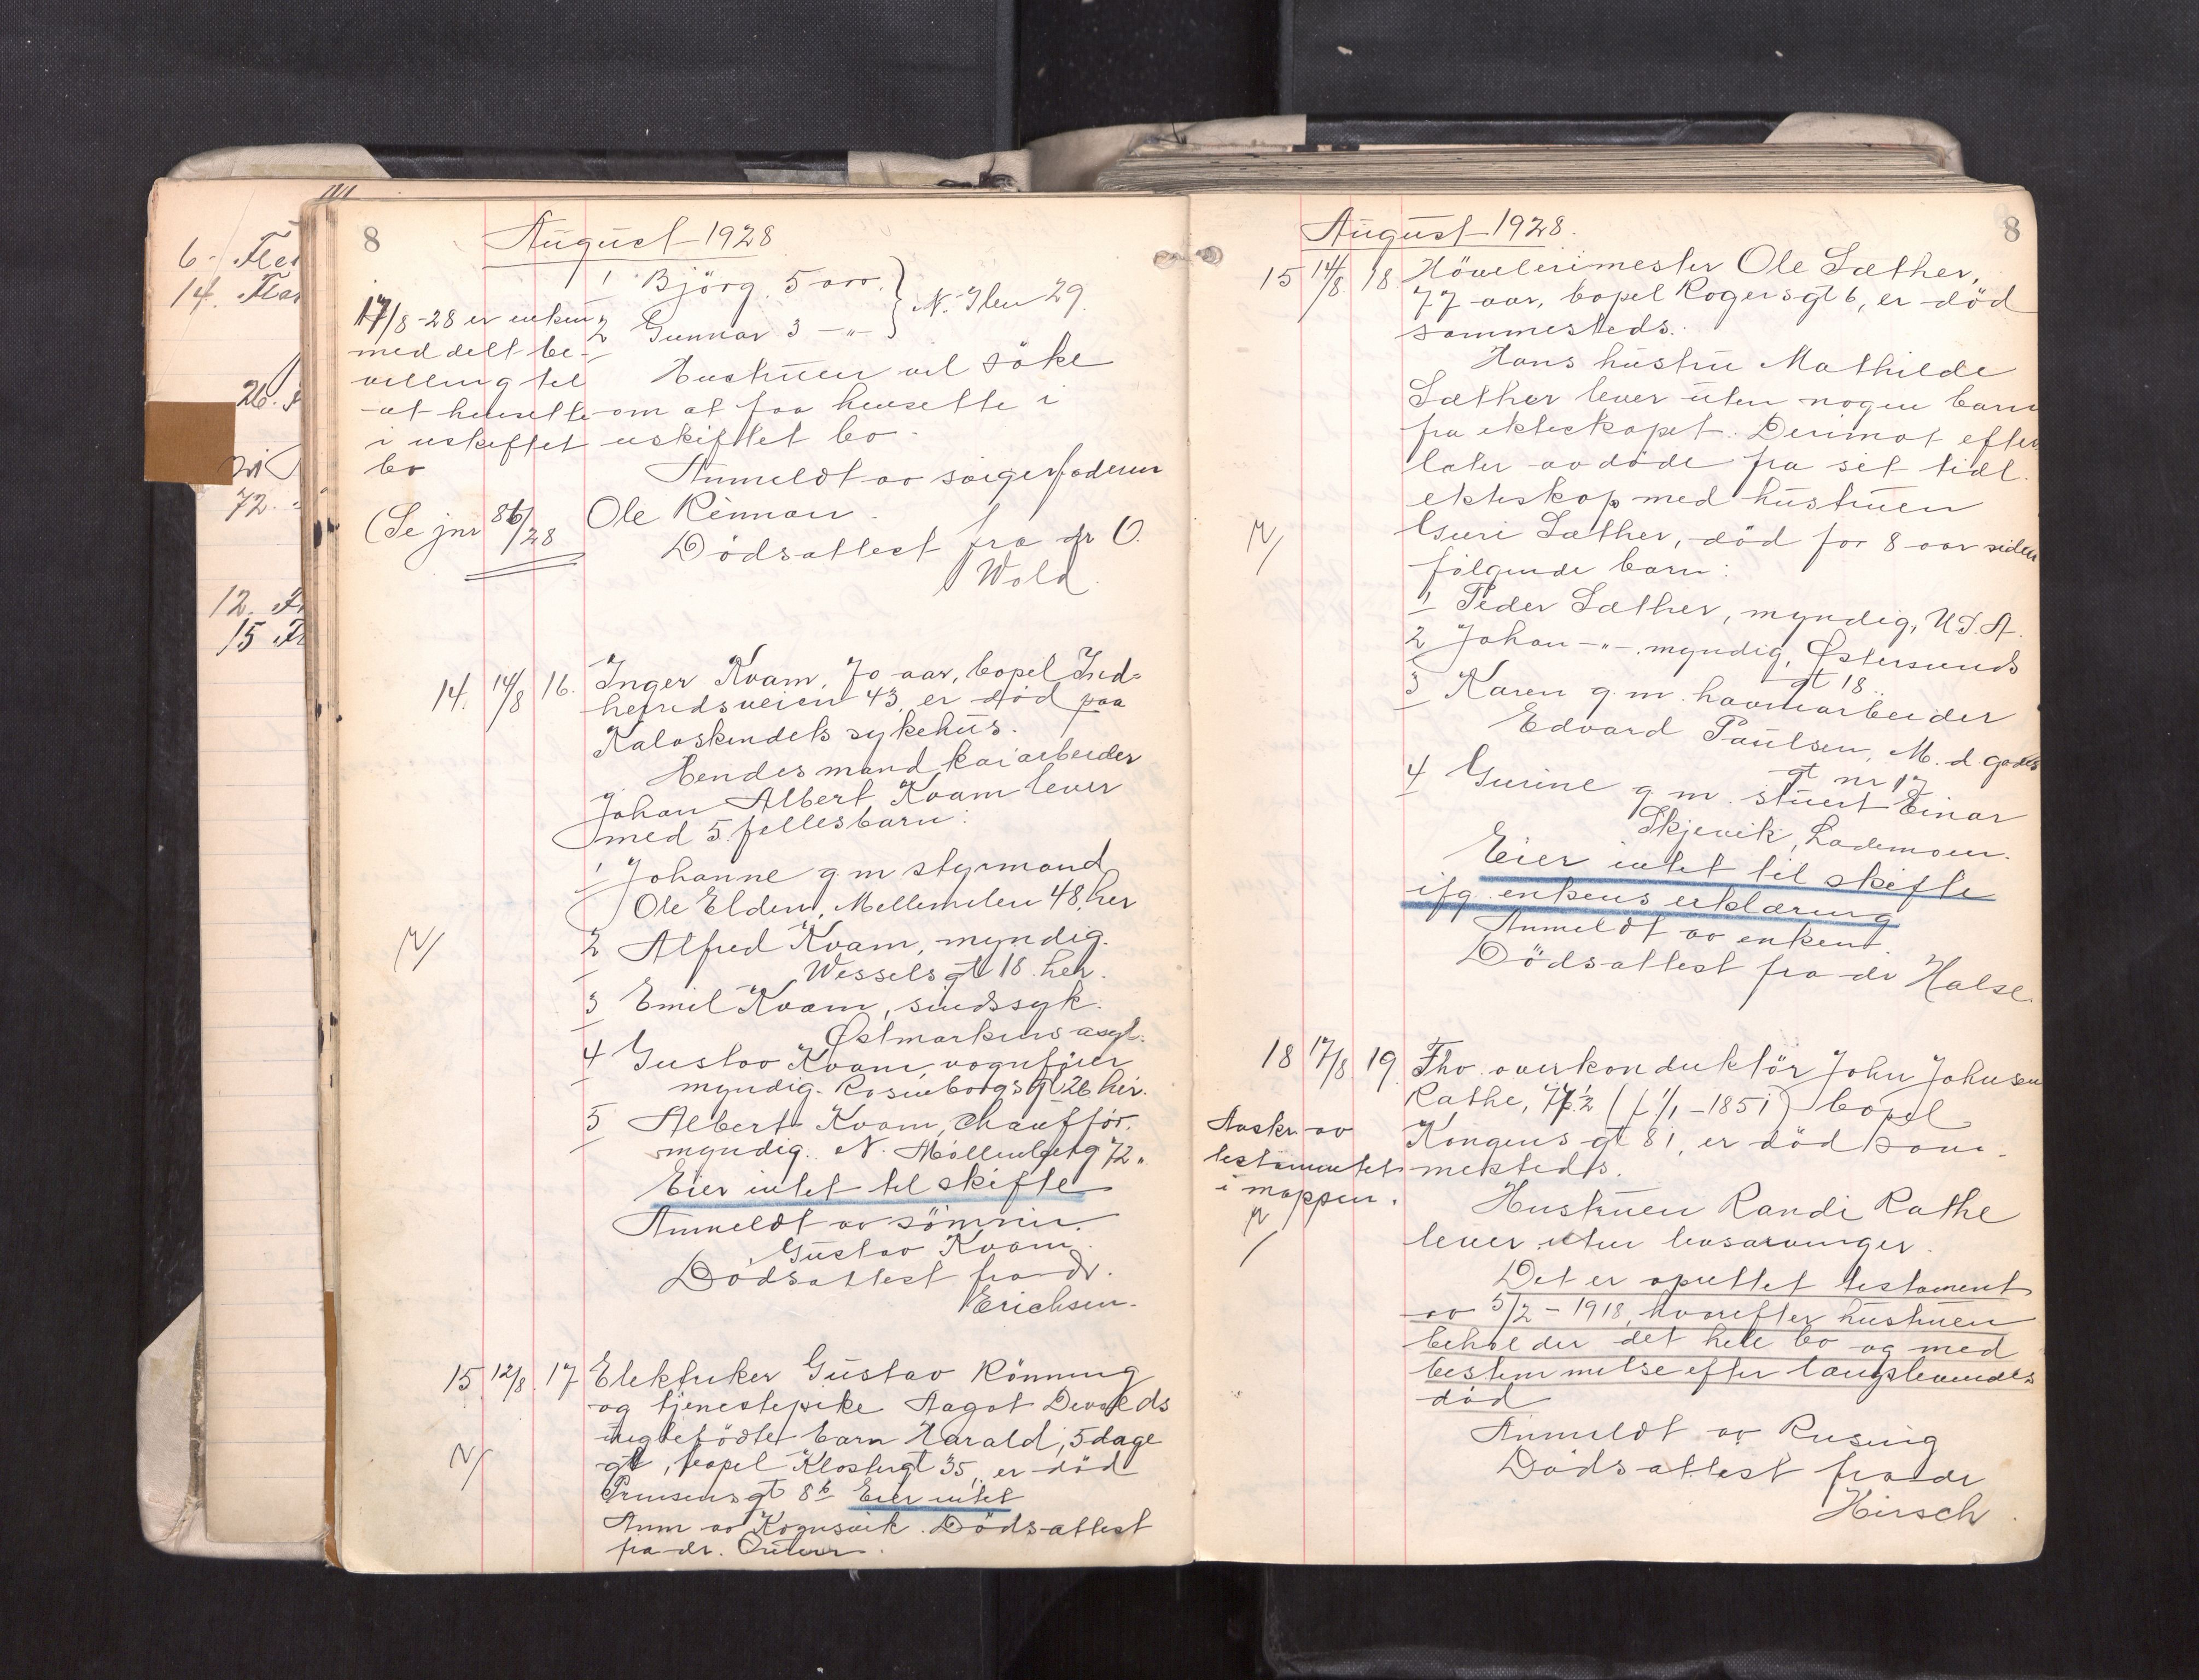 6. Fler
14. Flas
26.
72.
12. Fr
15 Fr
8
August 1928
1 Bjørg 5 aar.
2 Gunnar 3 -"-
N. Ilen 29.
17/8-28 er enken
meddelt be-
villing til
at hensitte
i uskiftet
bo
(Se jnr 86/28
Hustruen vil søke
om at faa hensitte i
uskiftet bo.
Anmeldt av svigerfaderen
Ole Rennan.
Dødsattest fra dr O.
Wold.
14. 14/8 16. Inger Kvam, 70 aar, bopel Ind-
herredsveien 43, er död paa
Kalvskindets sykehus.
Hendes mand kaiarbeider
Johan Albert Kvam lever
med 5 fellesbarn:
1 Johanne g m styrmand
Ole Elden, Mellemilen 48, her
2 Alfred Kvam, myndig.
Wessels gt 18 her.
3 Emil Kvam, sindssyk.
Østmarkens asyl.
4 Gustav Kvam, vognfører
myndig. Rosenborgs gt 26 her.
5 Albert Kvam, chaufför.
myndig. N. Möllenberg 72"
Eier intet til skifte
Anmeldt av sönnen
Gustav Kvam.
Dödsattest fra dr.
Erichsen.
15. 12/8. 17 Elektriker Gustav Rönning
og tjenestepike Aagot Devolds
uegtefödte barn Harald, 5 dage
gl, bopel Klostergt 35, er död
Prinsens gt 8b Eier intet
Anm av Kornsvik. Dödsattest
fra dr.
N/
N/
8
August 1928.
15 14/8 18. Hövelerimester Ole Sæther,
77 aar, bopel Rogers gt 6, er död
sammesteds.
Hans hustru Mathilde
Sæther lever uten nogen barn
fra ekteskapet. Derimot efter
later avdöde fra sit tidl.
ekteskap med hustruen
Guri Sæther, död for 8 aar siden
fölgende barn:
1 Peder Sæther, myndig, U.S.A.
2 Johan -"- myndig, Østersunds
gt 18.
3 Karen g. m. havnearbeider
Edvard Paulsen, M. d. godes
gt nr 17
4 Gurine g m. stuert Einar
Skjevik, Lademoen.
Eier intet til skifte
ifg. enkens erklæring
Anmeldt av enken.
Dödsattest fra dr Halse.
N/
18 17/8 19. Fhv. overkonduktör John Johnsen
Rathe, 77 1/2 (f. 1/1-1851) bopel
Kongens gt 81, er död sam-
mesteds.
Avskr. av
testamentet
i mappen.
N
/
Hustruen Randi Rathe
lever uten livsarvinger.
Det er oprettet testament
av 5/2-1918, hvorefter hustruen
beholder det hele bo og med
bestemmelse efter længstlevendes
död
Anmeldt av Rusing
Dödsattest fra dr
Hirsch.